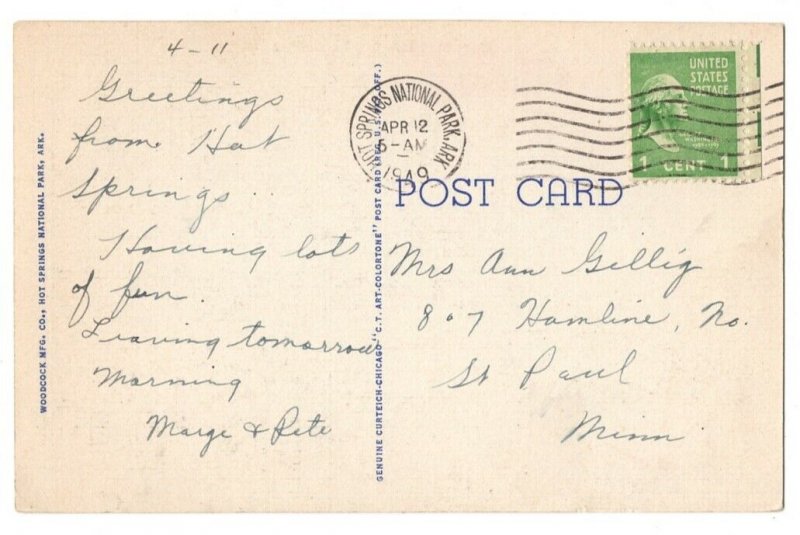 4-11
Greetings
from Hot
Springs..
Having lots
of fun.
Leaving tomorrow
Morning
Marge & Pete
WOODCOCK MFG. CO., HOT SPRINGS NATIONAL PARK, ARK.
GENUINE CURTEICH-CHICAGO "C.T. ART-COLORTONE" POST CARD (REG. U.S. PAT. OFF.)
HOT SPRINGS NATIONAL PARK, ARK.
APR 12
5-AM
1949
UNITED
STATES
POSTAGE
1 CENT 1
POST CARD
Mrs Ann Gillig
807 Hamline, No.
St Paul
Minn